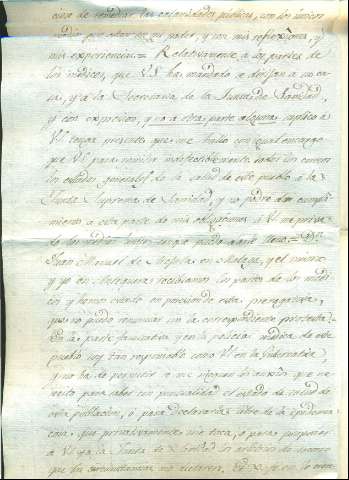 cios de remediar las calamidades publicas, son los unicos
medio que estan en mi poder, y con mis reflexiones, y
mis experiencias = Relativamente a los partes de
los medicos, que VS ha mandado se dirijan a su ca
sa, y a la Secretaria de la Junta de Sanidad,
y con expresion, y no a otra parte alguna suplico a
VS tenga presente que me hallo con igual encargo
que VS para remitir indefectiblemente todos los correos
los estados generales de la salud de este pueblo a la
Junta Suprema de Sanidad, y no podre dar cumpli
miento a esta parte de mis obligaciones si VS me priva
de los medios
Juan Manuel de Arejula en Malaga, y el mismo
y yo en Antequera recibiamos los partes de los medi
cos y hemos estado en posesion de esta prerrogativa,
que no puedo renunciar sin la correspondiente protesta
En la parte facultativa y en la policia medica de este
pueblo soy tan responsable como VS en la gubernativa
y no ha de permitir se me nieguen los auxilios que ne
cesito para saber con puntualidad el estado de salud de
esta poblacion, o para declararla libre de la epidemia
cosa que privativamente me toca, o para proponer
a VS y a la Junta de Sanidad los arbitrios de socorro
que las circunstancias me dictaren.